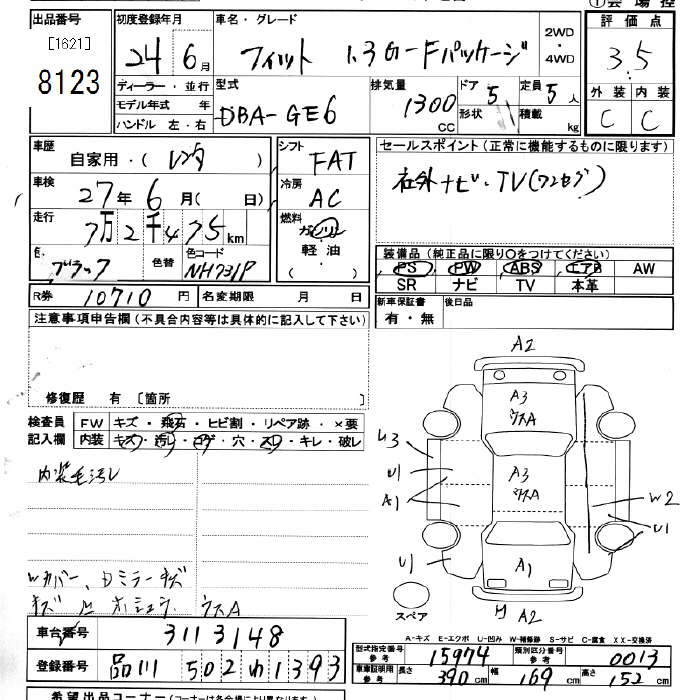 出品番号 初度登録年月 車名・グレード ①会場控
[1621] 24年6月 フィット 1.3G-Fパッケージ 2WD・4WD 評価点
8123 3.5
ディーラー・並行 型式 排気量 ドア 5 定員 5人 外装 内装
モデル年式 年 DBA-GE6 1300CC 形状 積載 kg C C
ハンドル 左・右
車歴 自家用・( ) シフト FAT セールスポイント(正常に機能するものに限ります)
車検 27年6月( 日) 冷房 AC 社外ナビ・TV(ワンセグ)
走行 7万2千475km 燃料 ガソリン 軽油 ( ・ )
色 ブラック 色替 色コード NH731P 装備品(純正品に限り○をつけてください)
PS PW ABS エアB AW
SR ナビ TV 本革
R券 10710円 名変期限 月 日 新車保証書 有・無 後日品
注意事項申告欄(不具合内容等は具体的に記入して下さい)
修復歴 有 [箇所 ]
検査員 FW キズ・飛石・ヒビ割・リペア跡・×要
記入欄 内装 キズ・汚レ・コゲ・穴・スレ・キレ・破レ
内装毛汚レ
Wカバー、Dミラーキズ
ウスA
A2
A3 ウスA
A3 ウスA
A1
U1
A1
U1
W2
U1
A1
スペア A2
車台番号 3113148
登録番号 品川 502 わ 1393
A-キズ E-エクボ U-凹み W-補修跡 S-サビ C-腐食 XX-交換済
型式指定番号 参考 15974 類別区分番号 参考 0013
車庫証明用 参考 長さ 390cm 幅 169cm 高さ 152cm
希望出品コーナー